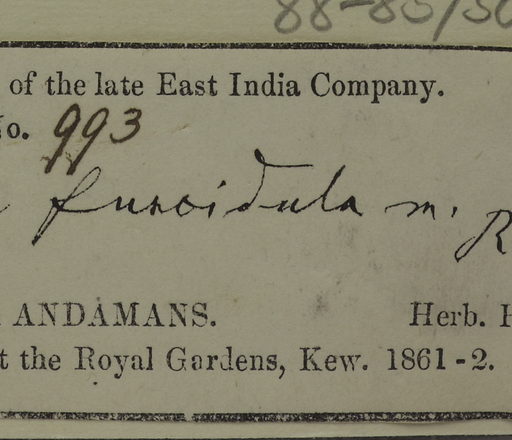 of the late East India Company.
No. 993
fuscidula m. R
ANDAMANS. Herb. H
t the Royal Gardens, Kew. 1861-2.